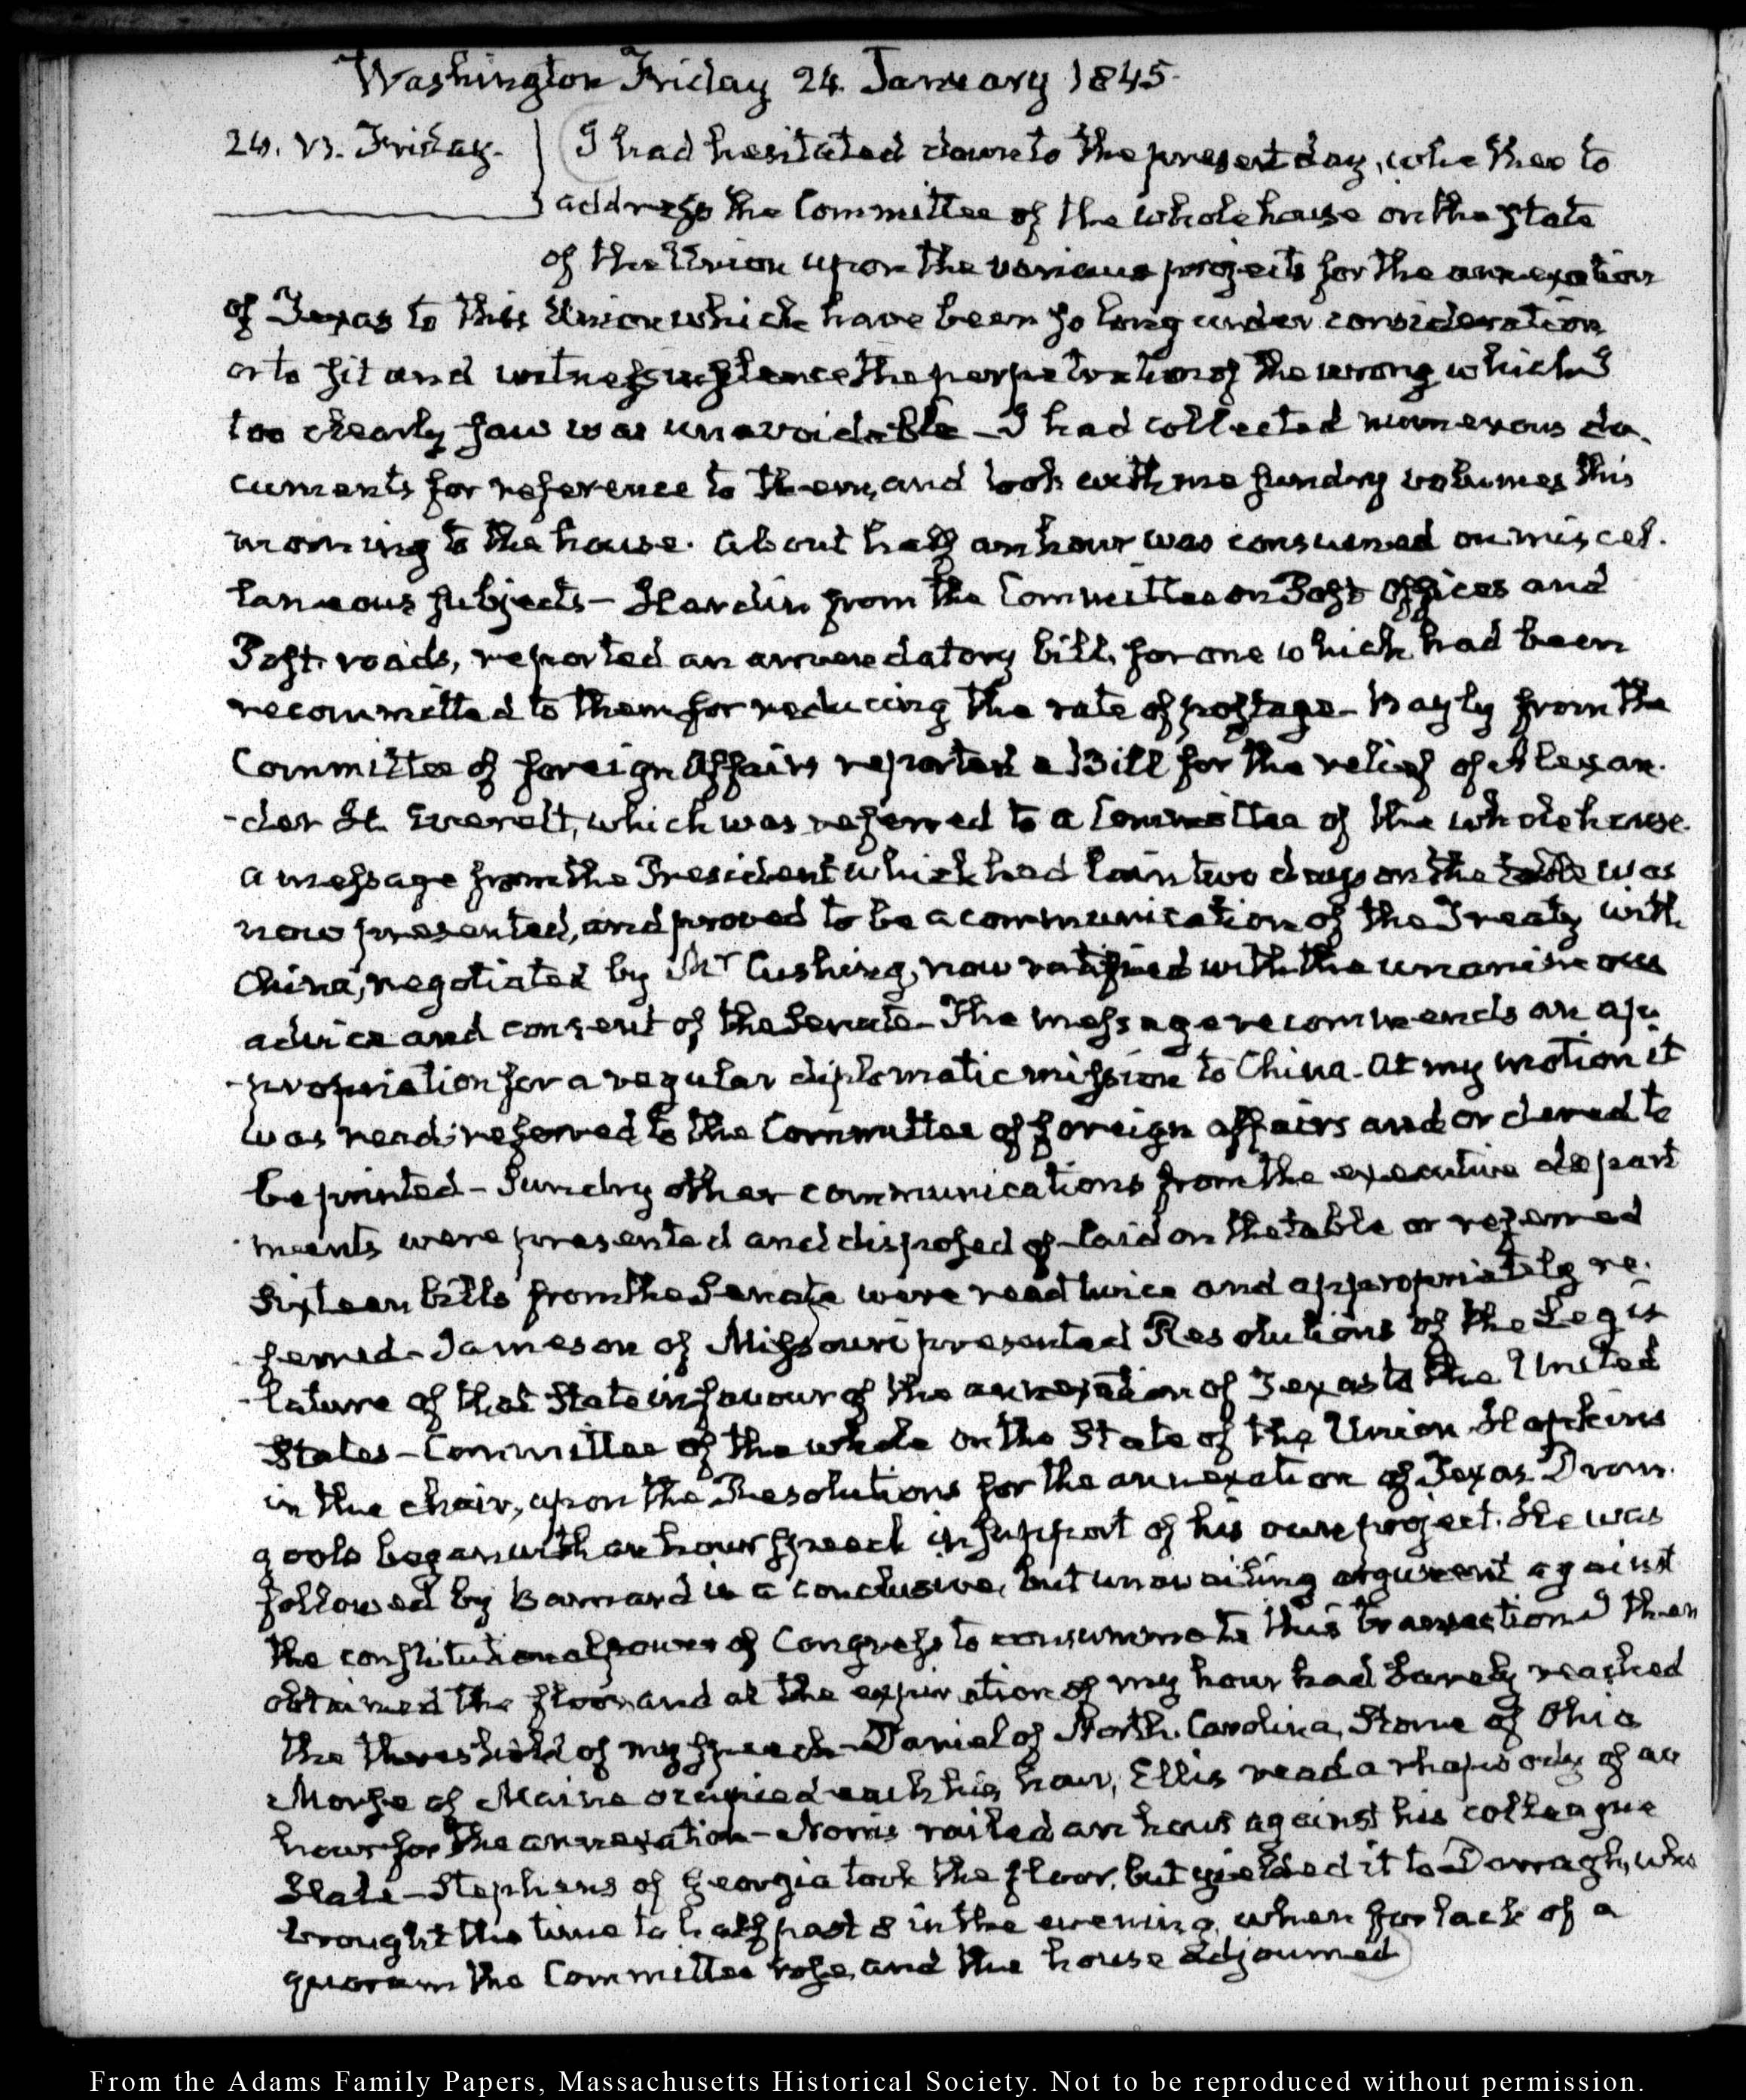 Washington Friday 24. January 1845.
24. VI. Friday.
I had hesitated down to the present day, whether to
address the Committee of the whole house on the State
of the Union upon the various projects for the annexation
of Texas to this Union which have been so long under consideration
or to sit and witness in silence the perpetration of the wrong which I
too clearly saw was unavoidable – I had collected numerous do-
cuments for reference to them, and took with me sundry volumes this
morning to the house. About half an hour was consumed on miscel-
laneous subjects – Hardin from the Committee on Post Offices and
Post roads, reported an amendatory bill, for one which had been
recommitted to them for reducing the rate of postage – Bayly from the
Committee of foreign Affairs reported a Bill for the relief of Alexan-
-der H. Everett, which was referred to a Committee of the whole house.
a message from the President which had lain two days on the table was
now presented, and proved to be a communication of the Treaty with
China, negotiated by Mr Cushing, now ratified with the unanimous
advice and consent of the Senate – The message recommends an ap-
-propriation for a regular diplomatic mission to China. At my motion it
was read; referred to the Committee of foreign affairs and ordered to
be printed – Sundry other communications from the executive depart
ments were presented and disposed of – laid on the table or referred
Sixteen bills from the Senate were read twice and appropriately re-
ferred – Jameson of Missouri presented Resolutions of the Legis
-lature of that State in favour of the annexation of Texas to the United
States – Committee of the whole on the State of the Union. Hopkins
in the chair, upon the Resolutions for the annexation of Texas. Drom-
goole began with an hour speech in support of his own project. He was
followed by Barnard in a conclusive, but unavailing argument against
the constitutional power of Congress to consummate this transaction I then
obtained the floor, and at the expiration of my hour had barely reached
the threshold of my speech – Daniel of North Carolina, Stone of Ohio
Morse of Maine occupied each his hour, Ellis read a rhapsody of an
hour for the annexation – Norris railed an hour against his colleague
Hale – Stephens of Georgia took the floor, but yielded it to Darragh, who
brought the time to half past 8 in the evening, when for lack of a
quorum the Committee rose, and the house adjourned
From the Adams Family Papers, Massachusetts Historical Society. Not to be reproduced without permission.